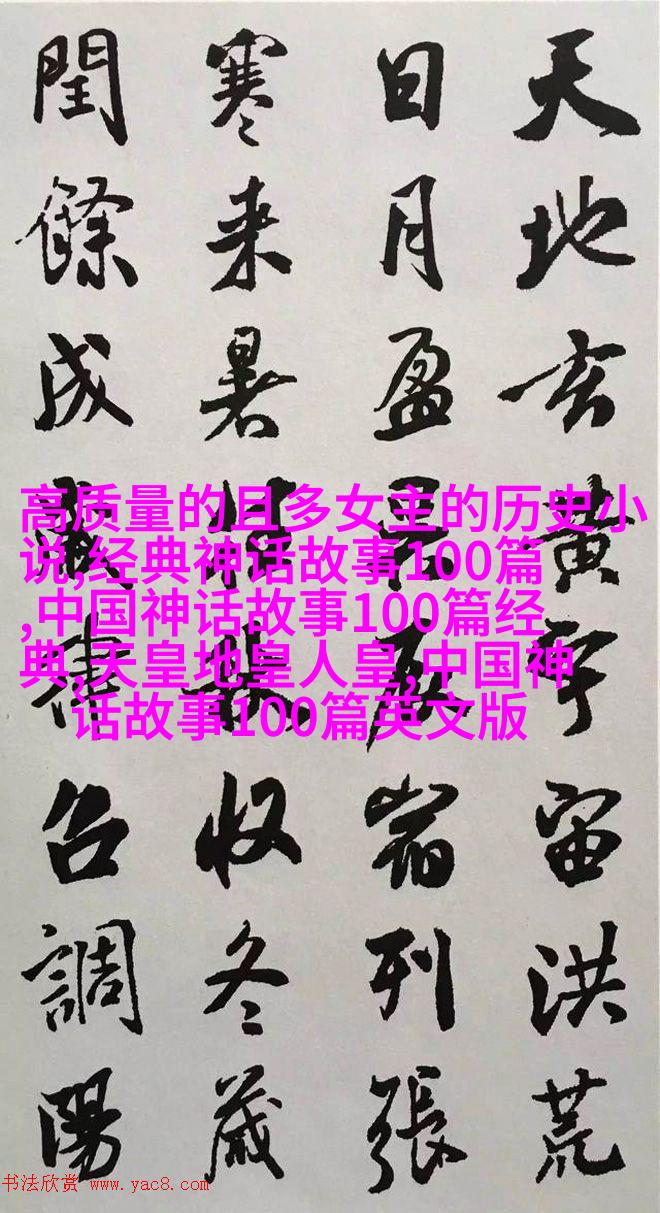 天地玄黄宇宙洪荒
日月盈昃辰宿列張
寒来暑往秋收冬蔵
閏餘成歲律召調陽
高质量的且多女主的历史小
说,经典神话故事100篇
,中国神话故事100篇经
典,天皇地皇人皇,中国神
话故事100篇英文版
书法欣赏 www.yac8.com